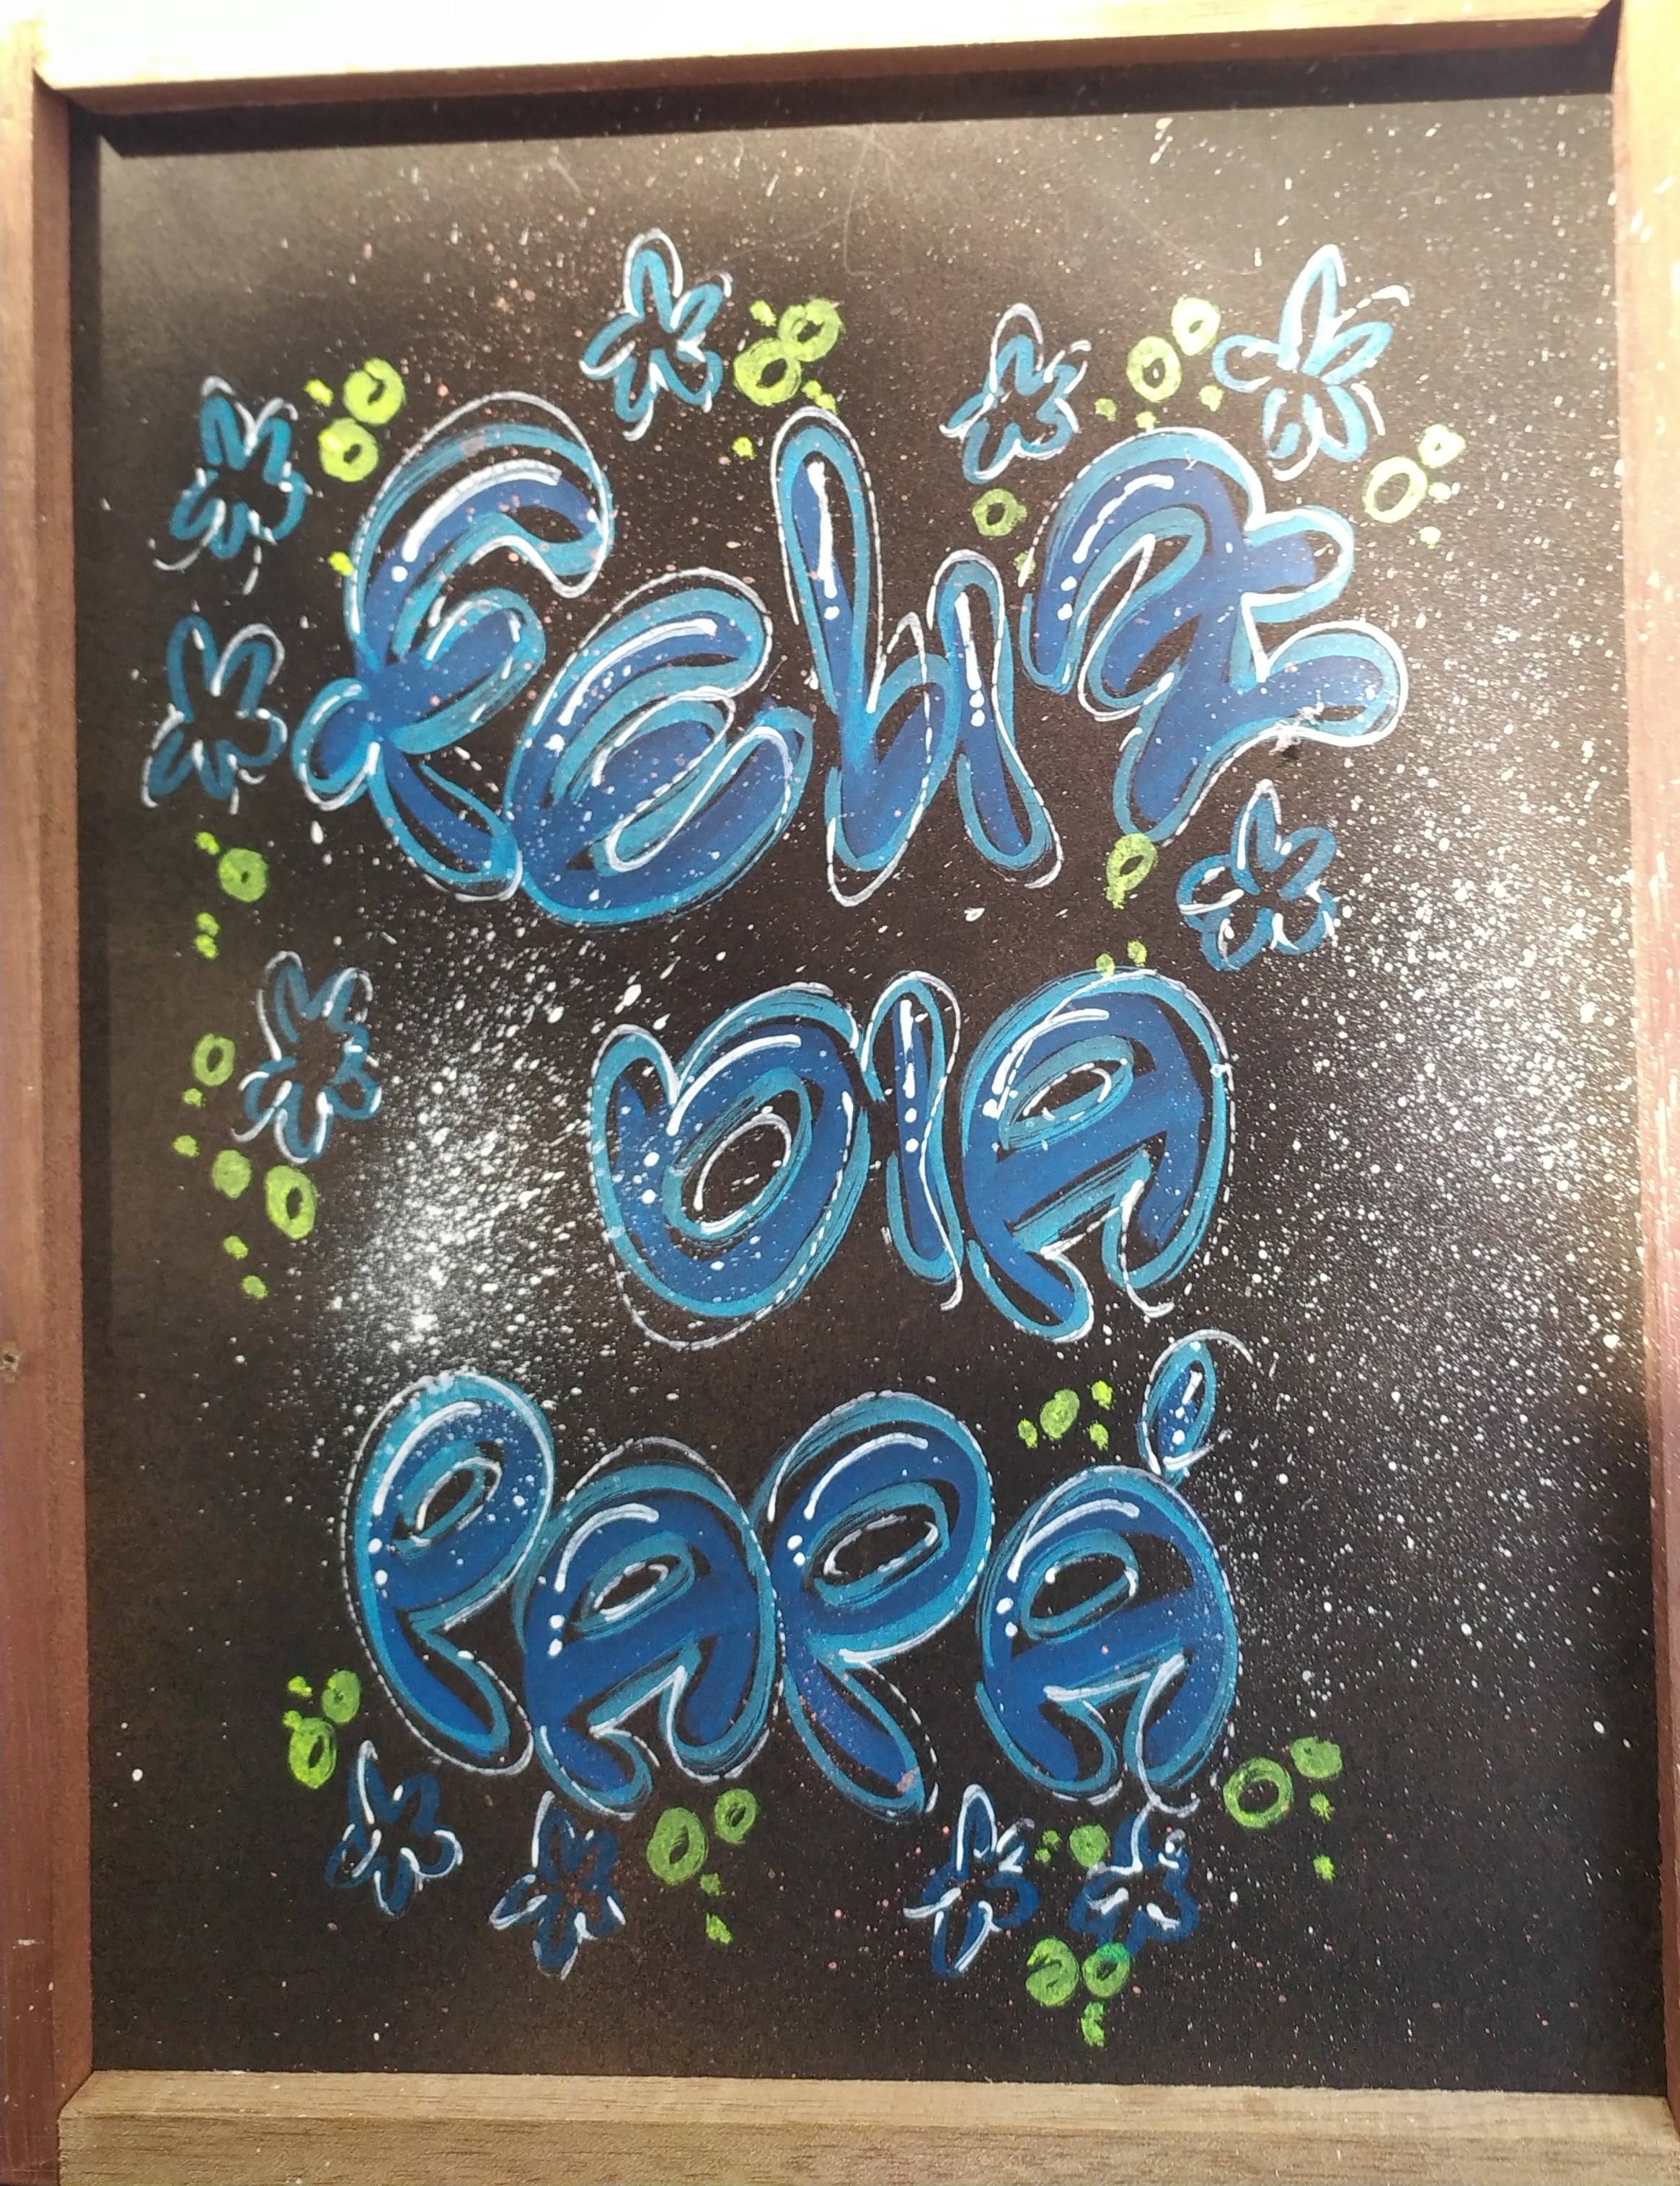 Feliz
DIA
PAPÁ